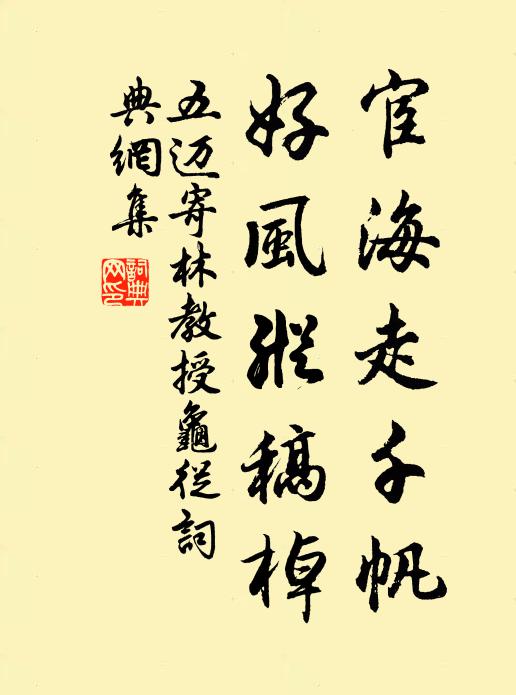 宦海走千帆
好風縱稿棹
五迈寄林教授龜從詞
典網集
詞典網印